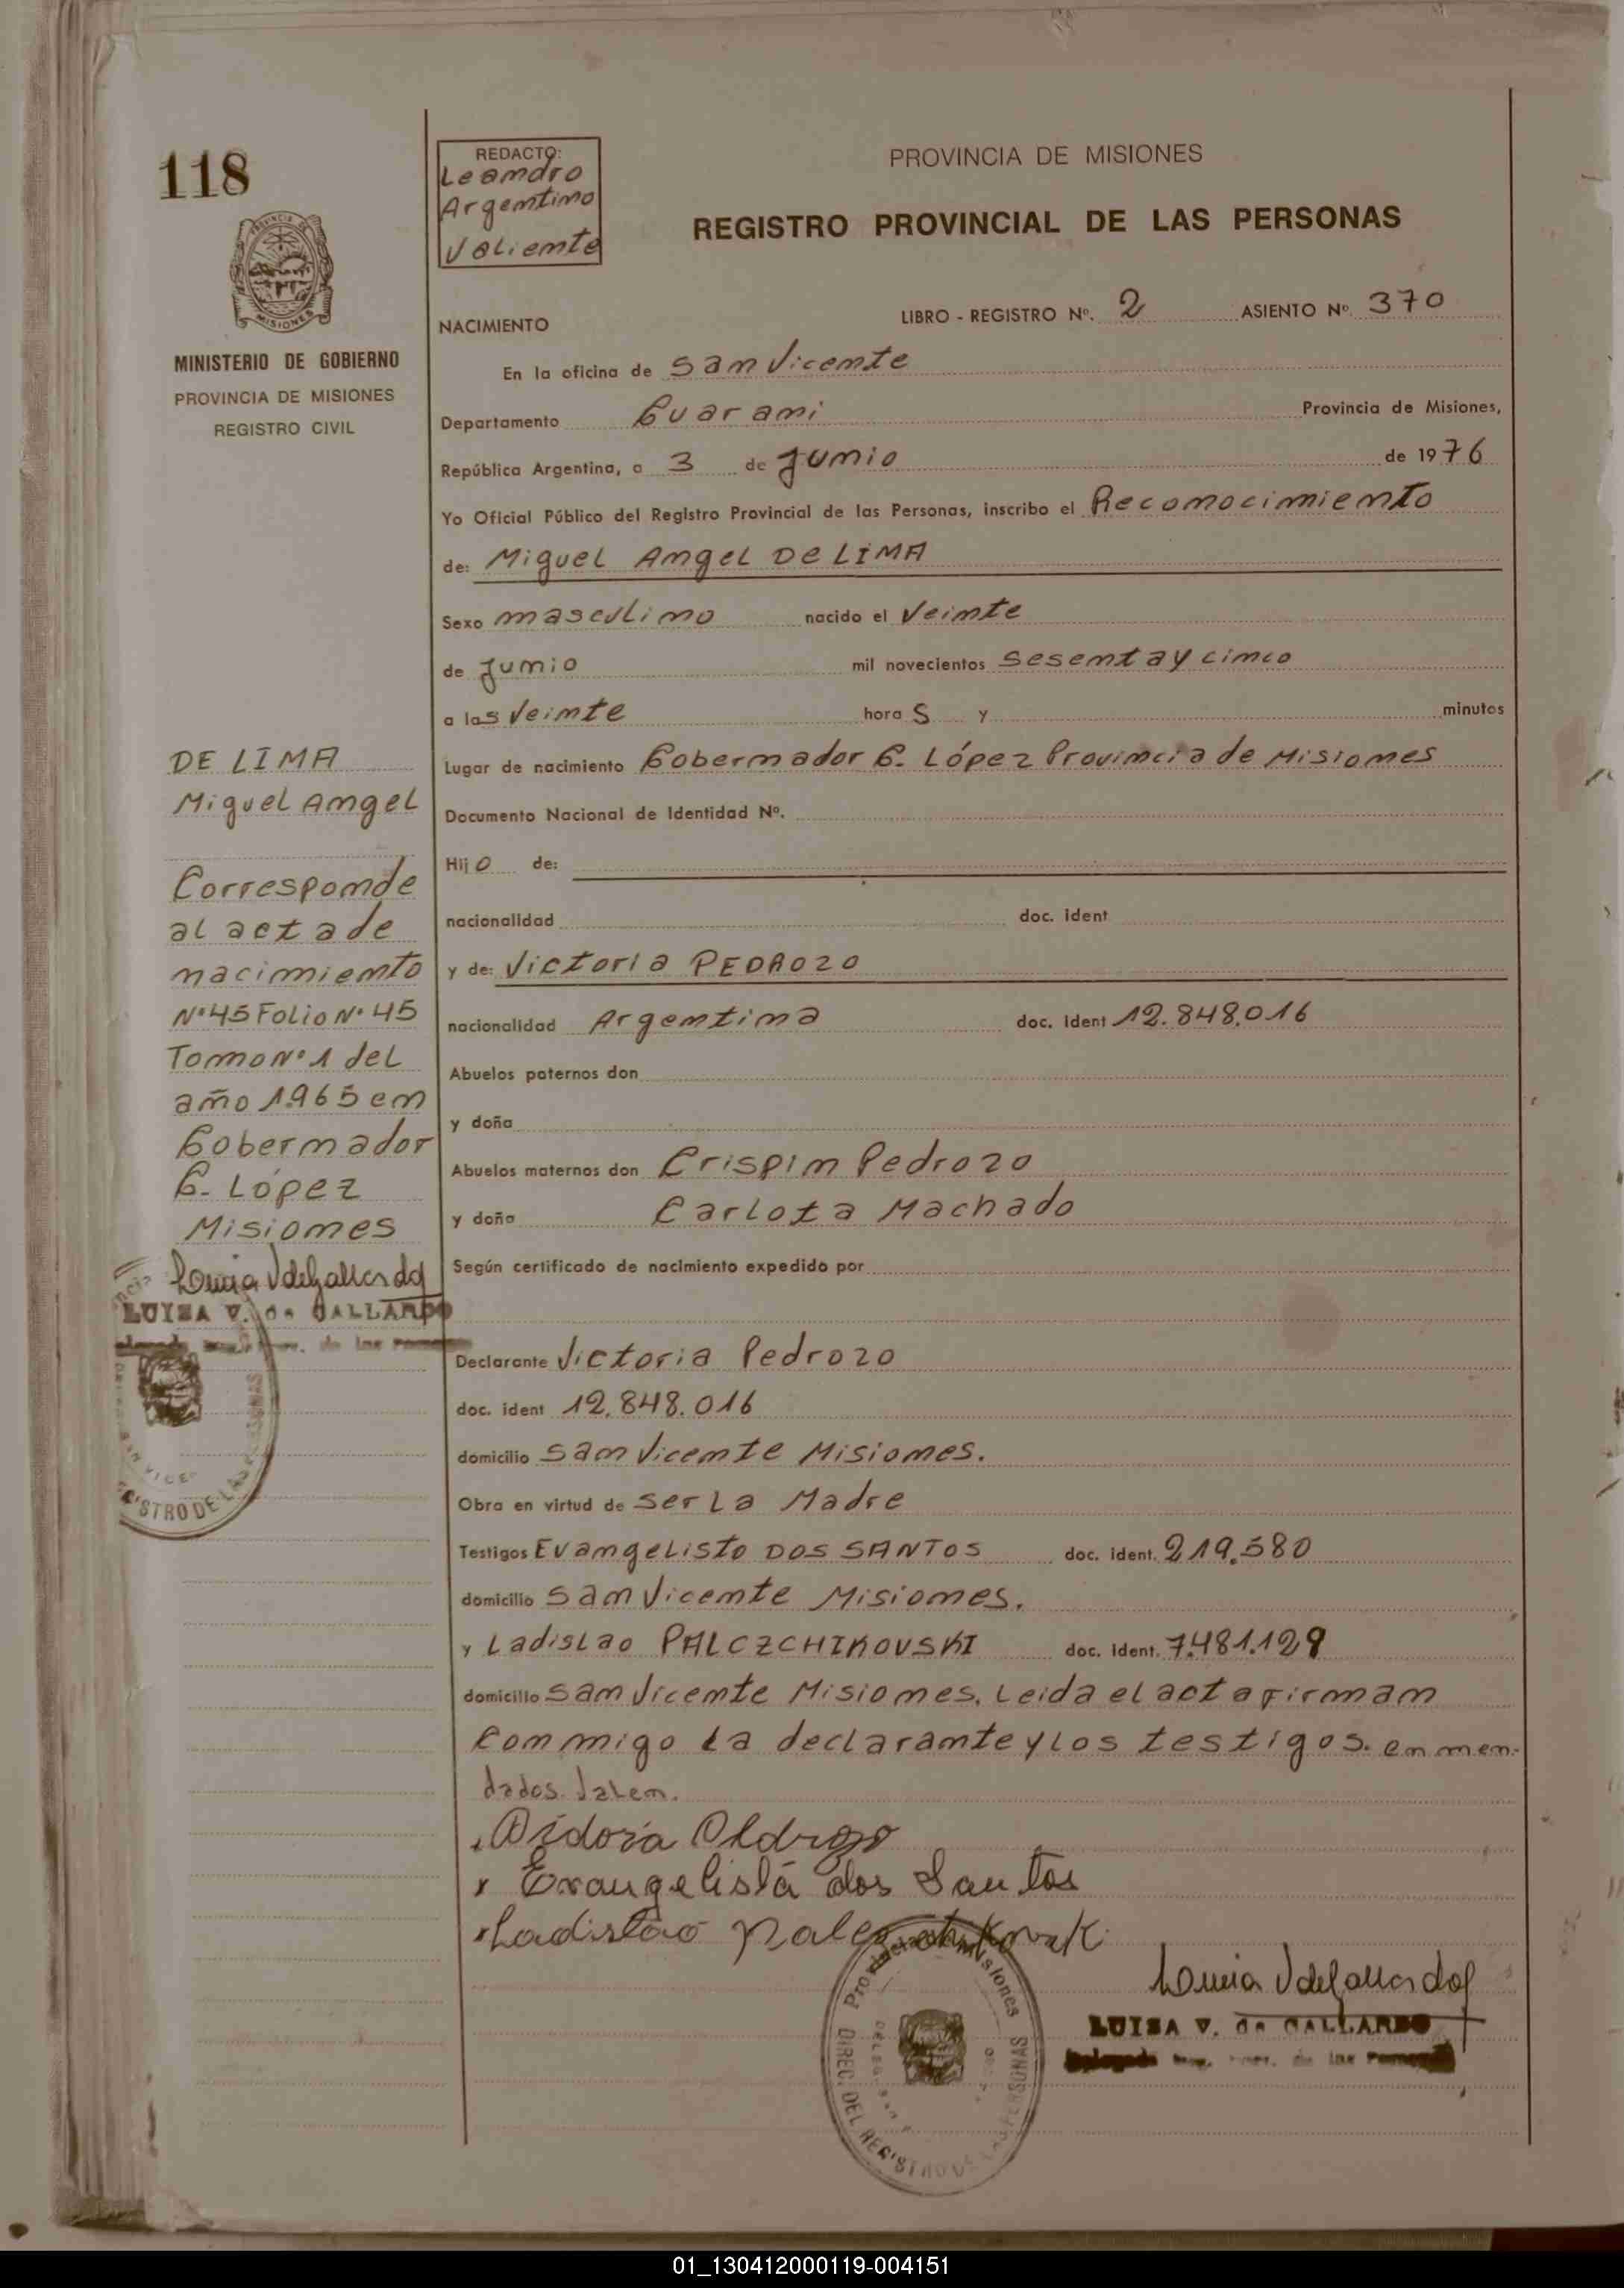 118
REDACTO:
Leandro
Argentino
Valiente
PROVINCIA DE MISIONES
REGISTRO PROVINCIAL DE LAS PERSONAS
MISIONES
MINISTERIO DE GOBIERNO
PROVINCIA DE MISIONES
REGISTRO CIVIL
NACIMIENTO LIBRO - REGISTRO Nº. 2 ASIENTO Nº. 370
En la oficina de San Vicente
Departamento Guarani Provincia de Misiones,
República Argentina, a 3 de Junio de 1976
Yo Oficial Público del Registro Provincial de las Personas, inscribo el Reconocimiento
de: Miguel Angel DE LIMA
Sexo masculino nacido el Veinte
de Junio mil novecientos sesenta y cinco
a las Veinte horas y minutos
Lugar de nacimiento Gobernador G. López Provincia de Misiones
Documento Nacional de Identidad Nº.
Hijo de:
nacionalidad doc. ident
y de: Victoria PEDROZO
nacionalidad Argentina doc. ident 12.848.016
Abuelos paternos don
y doña
Abuelos maternos don Crispin Pedrozo
y doña Carlota Machado
Según certificado de nacimiento expedido por
Declarante Victoria Pedrozo
doc. ident 12.848.016
domicilio San Vicente Misiones.
Obra en virtud de ser La Madre
Testigos Evangelisto DOS SANTOS doc. ident. 219.580
domicilio San Vicente Misiones.
y Ladislao PALCZCHIKOVSKI doc. ident. 7.481.129
domicilio San Vicente Misiones. Leida el acta firman
conmigo la declarante y los testigos. enmen-
dados. Valen.
Evangelista dos Santos
Ladislao
LUISA V. de GALLARDO
Provincia de Misiones
DIREC. DEL REGISTRO DE LAS PERSONAS
DE LIMA
Miguel Angel
Corresponde
al acta de
nacimiento
Nº 45 Folio Nº 45
Tomo Nº 1 del
año 1965 en
Gobernador
G. López
Misiones
LUISA V. de GALLARDO
REGISTRO DE LAS PERSONAS
01_130412000119-004151